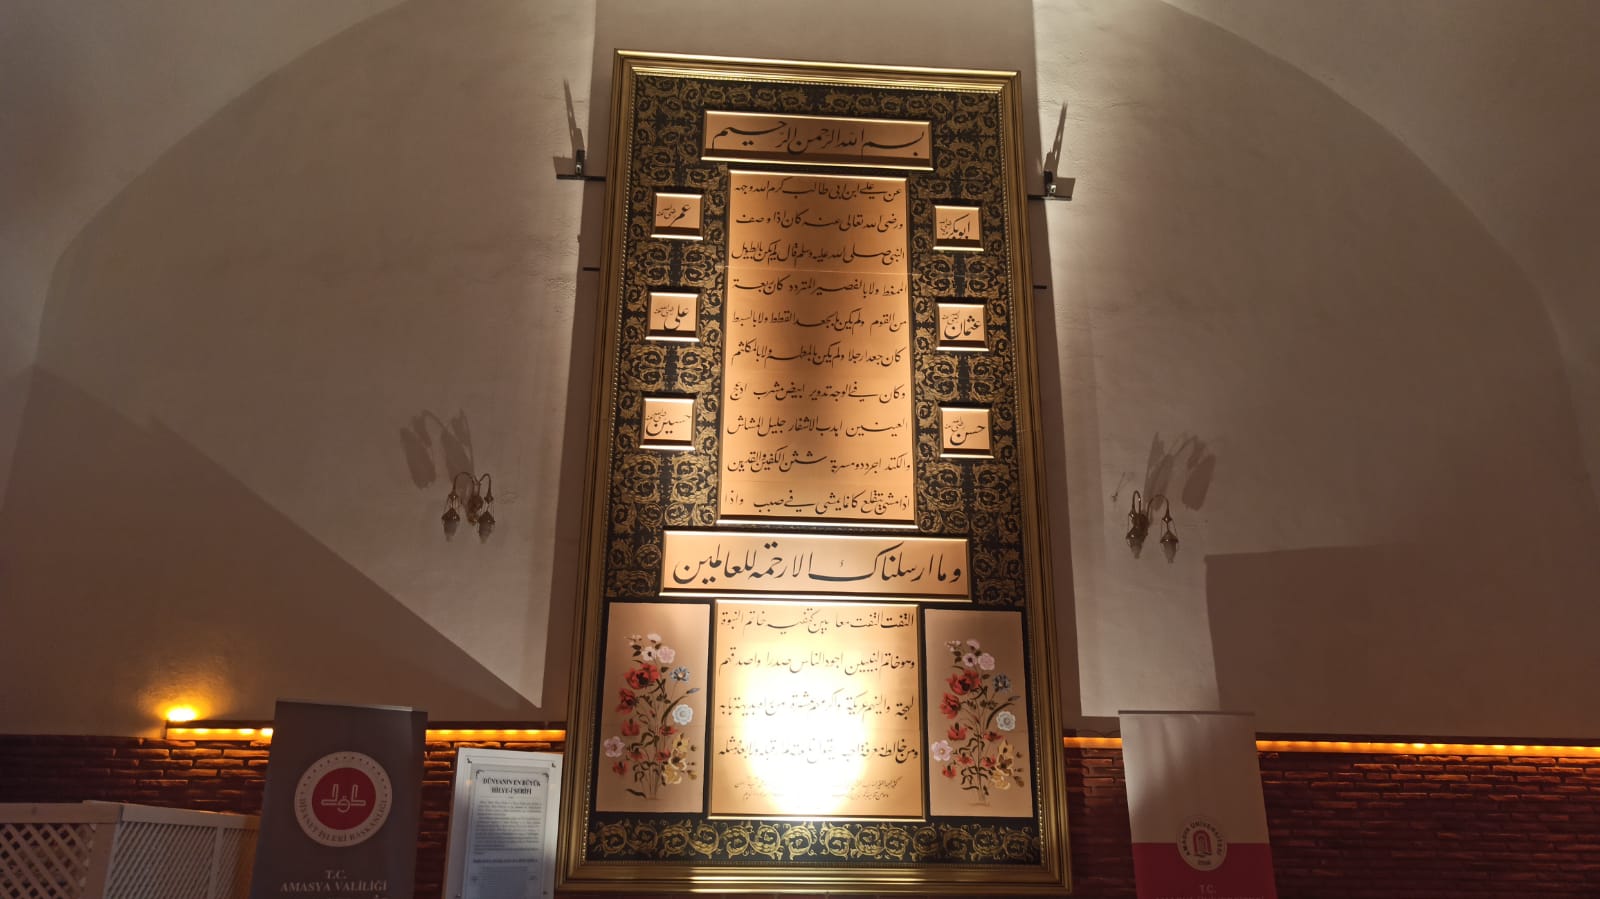 بسم الله الرحمن الرحيم
عن علي ابن ابي طالب كرم الله وجهه
ورضى الله تعالى عنه كان اذا وصف
النبي صلى الله عليه وسلم قال لم يكن بالطويل
الممغط ولا بالقصير المتردد كان ربعة
من القوم ولم يكن بالجعد القطط ولا بالسبط
كان جعدا رجلا ولم يكن بالمطهم ولا بالمكلثم
وكان في الوجه تدوير ابيض مشرب ادعج
العينين اهدب الاشفار جليل المشاش
والكتد اجرد ذو مسربة شثن الكفين والقدمين
اذا مشى يتقلع كانما يمشي في صبب واذا
ابوبكر
عمر
عثمان
على
حسن
حسين
وما ارسلناك الا رحمة للعالمين
التفت التفت معا بين كتفيه خاتم النبوة
وهو خاتم النبيين اجود الناس صدرا واصدقهم
لهجة والينهم عريكة واكرمهم عشرة من راه بديهة هابه
ومن خالطه معرفة احبه يقول ناعته لم ار قبله ولا بعده مثله
DİYANET İŞLERİ BAŞKANLIĞI
T.C.
AMASYA VALİLİĞİ
DÜNYANIN EN BÜYÜK
HİLYE-İ ŞERİFİ
AMASYA ÜNİVERSİTESİ
2006
T.C.